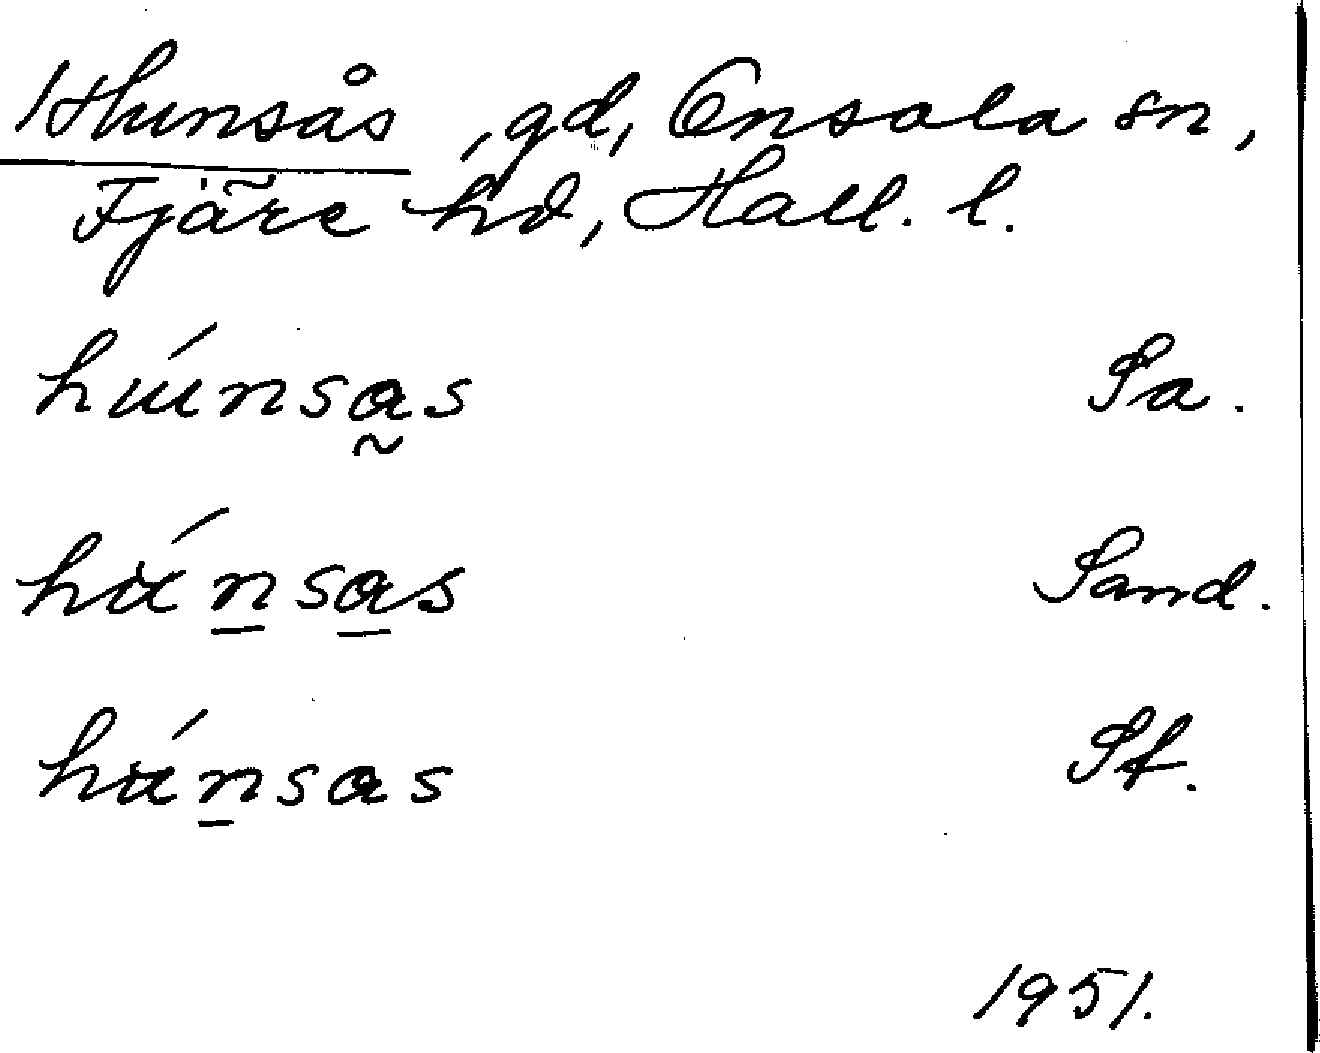 Hunsås, gd, Onsala sn,
Fjäre hd, Hall. l.
húnsa̰s Sa.
hún̲sa̲s Sand.
hún̲sas St.
1951.